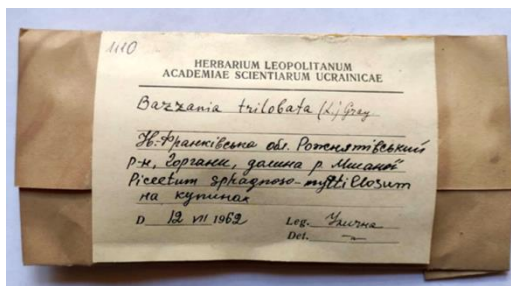 1110
HERBARIUM LEOPOLITANUM
ACADEMIAE SCIENTIARUM UCRAINICAE
Bazzania trilobata (L.) Gray
Ів.-Франківська обл. Рожнятівський
р-н, Горгани, долина р.
Piceetum sphagnoso-myrtillosum
на купинах
D 12 VII 1962 Leg. Улична
Det. —„—